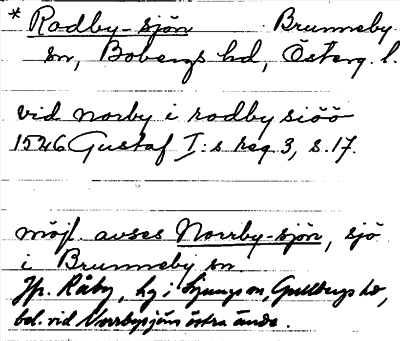 * Rodby-sjön Brunneby
sn, Bobergs hd, Österg. l.
vid norby i rodby siöö
1526 Gustaf I:s reg 3, s. 17.
möjl. avses Norrby-sjön, sjö
i Brunneby sn
Jfr Råby, by i Ljungs sn, Gullbergs hd,
bel. vid Norrbysjöns östra ände.